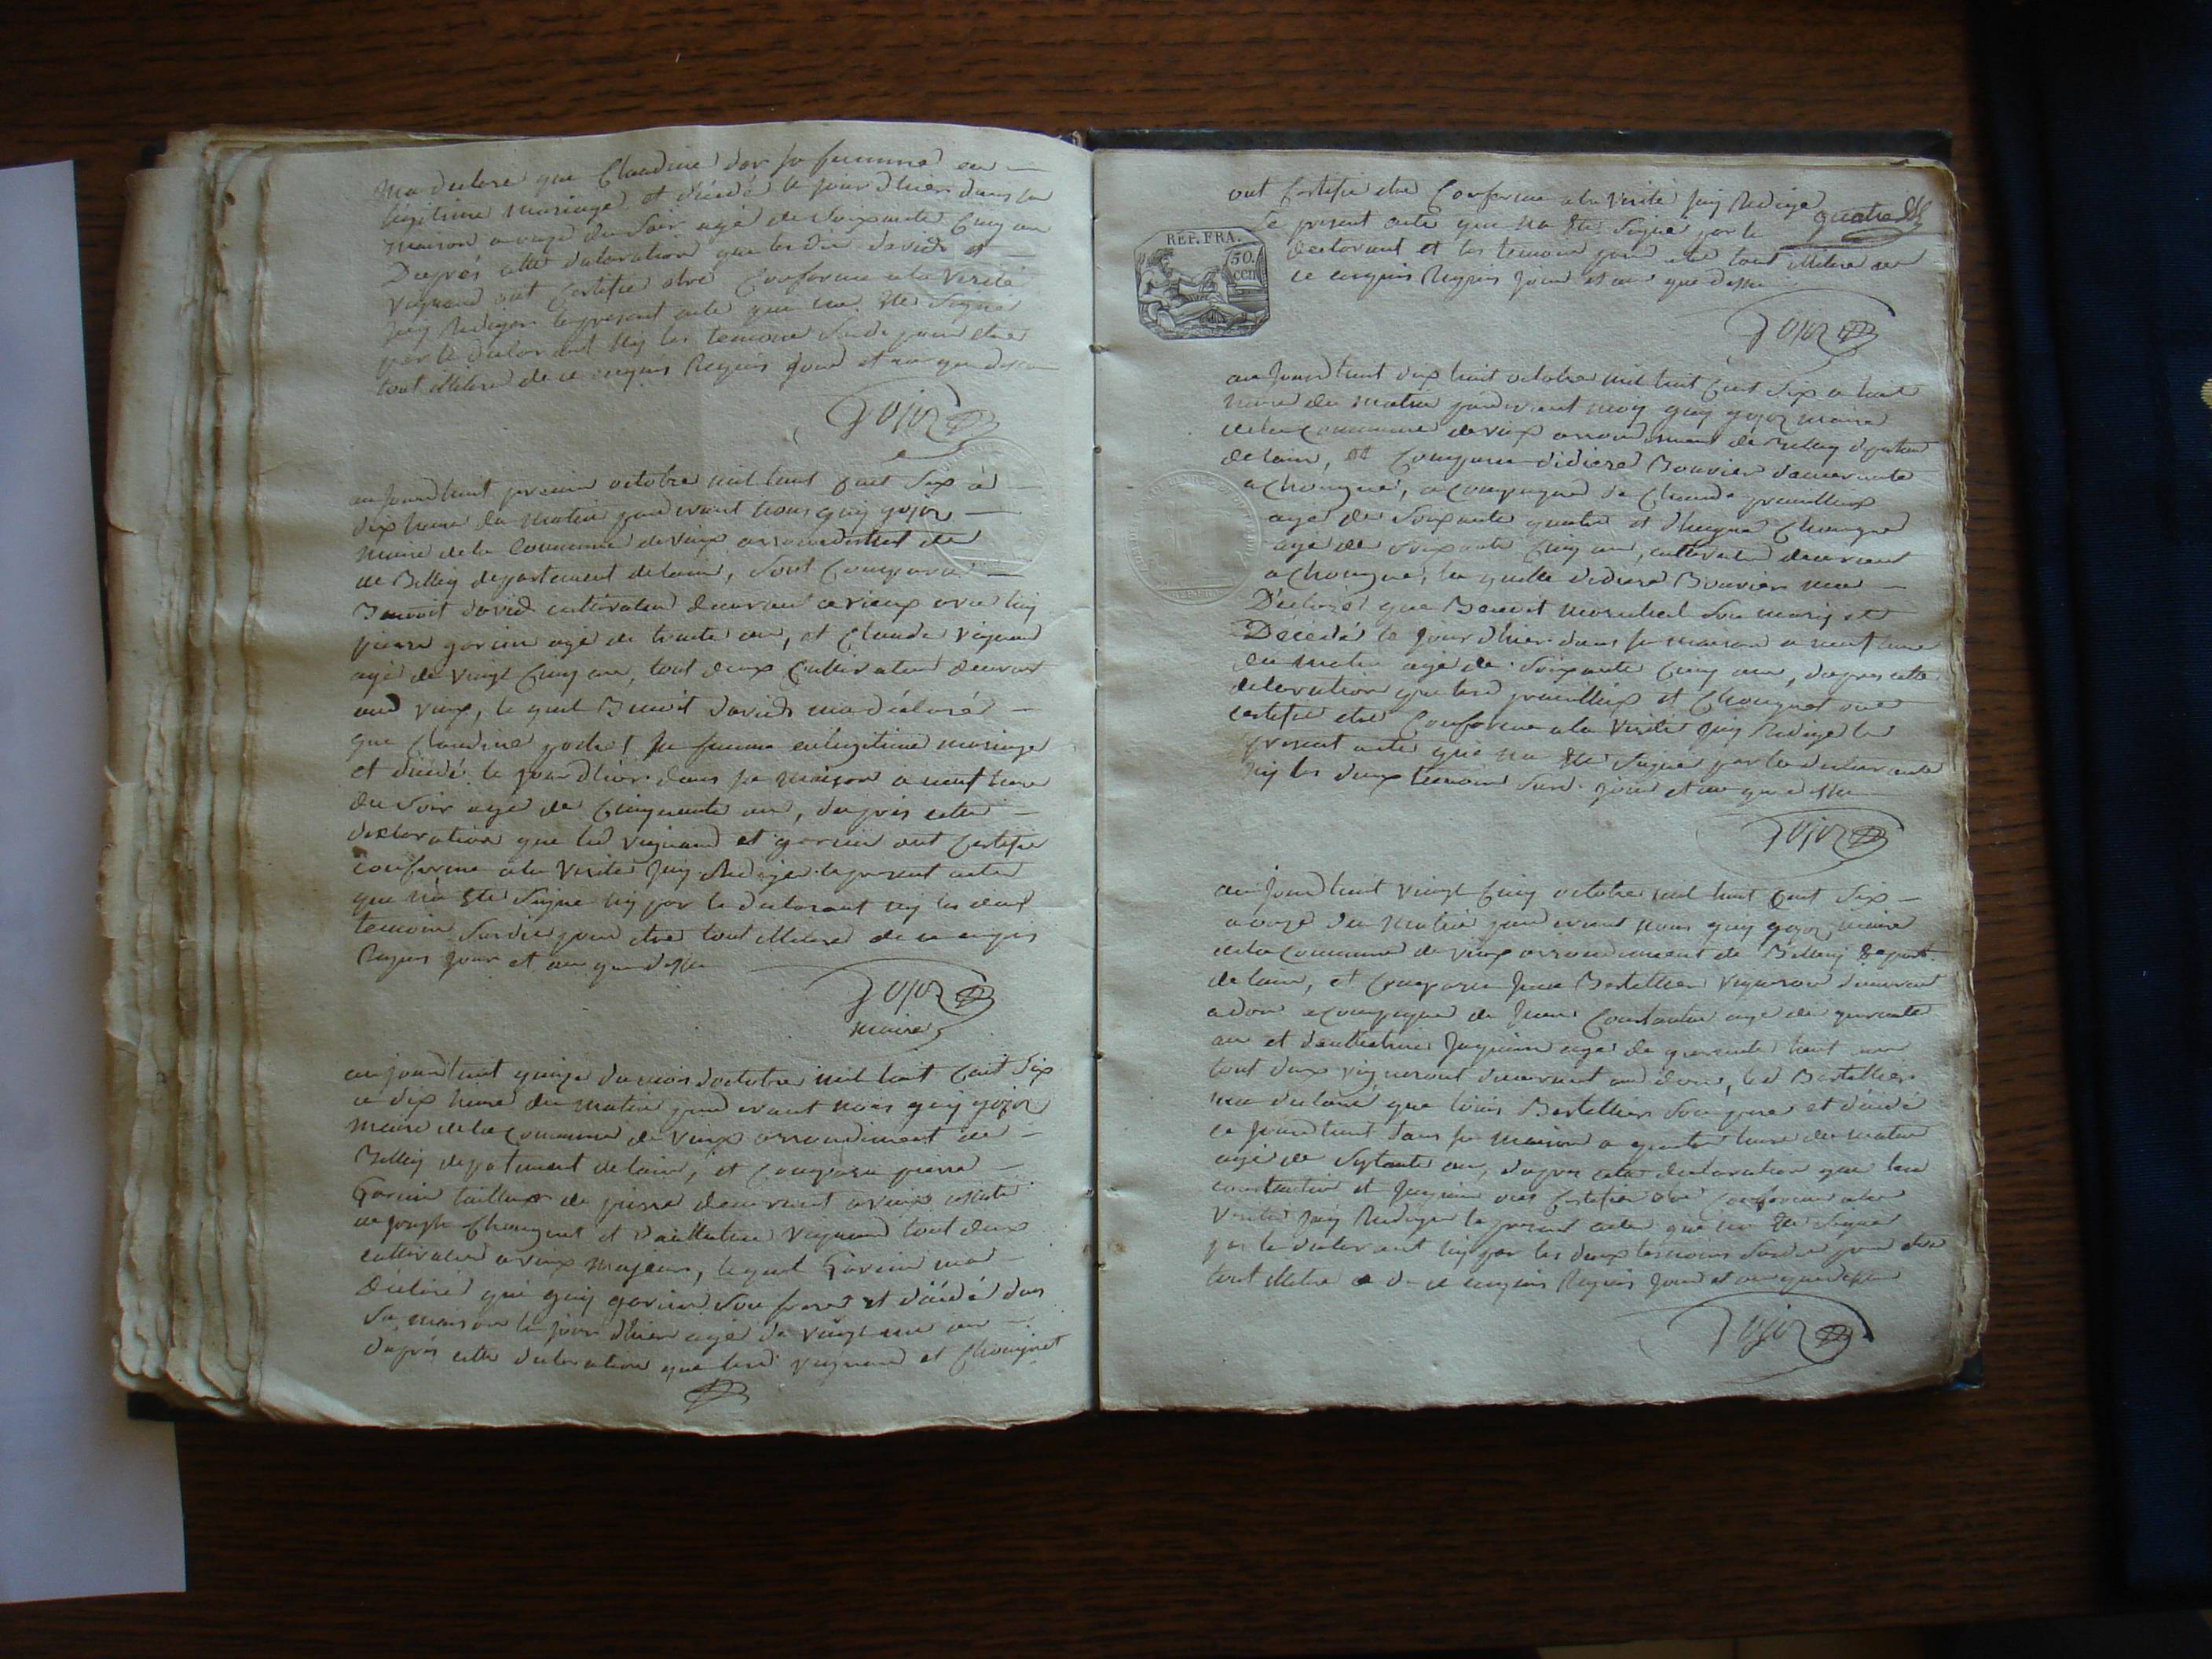 ma declaré que Claudine dor sa femme en
legitime mariage et dècédé le jour dhier dans sa
maison a onze du soir agé de soixante cinq an
Daprés cette declaration que les dit david et
vignand ont certifié etre conforme a la verité
jaÿ redigée le present acte qui na été signé
par le declarant ny les temoins susdit pour etre
tout illiteré de ce enquis requis jour et an que dessus
gojoz
aujourdhuit premier octobre mil huit cent six à
dix heure du matin pardevant nous guy gojoz
maire de la commune de vieux arrondissement de
de Belley departement de lain, sont comparu
Benoit david cultivateur demeurant a vieux avec luy
pierre gorin agé de trente an, et Claude vignand
agé de vingt cinq an, tout deux cultivateur demeurant
aud vieux, le quel Benoit david ma déclaré
que Claudine sa femme en legitime mariage
et dècédé le jour dhier dans sa maison a neuf heure
du soir agé de cinquante an, daprés cette
declaration que les vignand et gorin ont certifié
conforme a la verité jaÿ redigé le present acte
que na été signé ny par le declarant ny les deux
temoin susdit pour etre tout illiteré de ce enquis
requis jour et an que dessus
gojoz
maire
aujourdhuit quinze du mois doctobre mil huit cent six
a dix heure du matin pardevant nous guy gojoz
maire de la commune de vieux arrondiment de
Belley depatement de lain, et comparu pierre
Gorin tailleur de pierre demeurant a vieux
de joseph Chougnet et danthelme vignand tout deux
cultivateur a vieux majeur, lequel Gorin ma
déclaré que guy gorin son frere et dècédé dans
sa maison le jour dhier agé de vingt un an
daprés cette declaration que lesd vignand et Chougnet
ont certifié etre conforme a la verité jaÿ redigé
le present acte que na été signé par le
quatre
declarant et les temoin pour etre tout illiteré de
ce enquis requis jour et an que dessu
REP. FRA.
50.
cen
gojoz
aujourdhuit dix huit octobre mil huit cent six a huit
heure du matin pardevant moy guy gojoz maire
de la commune de vieux arrondisment de Belley departem
de lain, et comparu didiere Bouvier demeurante
a Chougne, acompagné de Claude
agé de soixante quatre et Chougne
agé de soixante cinq an, cultivateur demeurant
a Chougne, la quelle didiere Bouvier ma
Déclaré que Benoit marechal son mary et
Décédé le jour dhier dans sa maison a neuf heure
du matin agé de soixante cinq an, daprés cette
declaration que lesd et Chougnet ont
certifié etre conforme a la verité jaÿ redigé le
present acte que na été signé par la declarante
ny les deux temoin susd. jour et an que dessu
gojoz
aujourdhuit vingt cinq octobre mil huit cent six
a onze du matin pardevant nous guy gojoz maire
de la commune de vieux arrondiment de Belley depart.
de lain, et comparu jean Bertellier vigneron demeurant
a don acompagné de jean Constantin agé de quarante
an et danthelme juguin agé de quarante huit an
tout deux vigneront demeurant aud don, led Bertellier
ma declaré que louis Bertellier son pere et dècédé
ce jourdhuit dans sa maison a quatre heure du matin
agé de septante an, daprés cette declaration que lesd
constantin et juguin ont certifié etre conforme a la
verité jaÿ redigée le present acte que na été signé
par le declarant ny par les deux temoins susdit pour etre
tout illiteré de ce enquis requis jour et an que dessu
gojoz